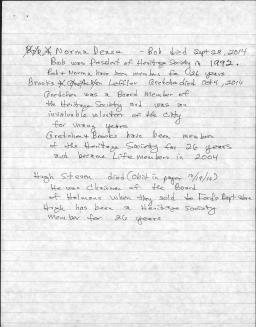 Bob & Norma Deusa - Bob died Sept 28, 2014
Bob was President of Heritage Society in 1992.
Bob & Norma have been members for 26 years
Brooks & Gretchen Lefiler Gretchen died Oct 4, 2014
Gretchen was a Board Member of
the Heritage Society and was an
invaluable volunteer of the City
for many years
Gretchen & Brooks have been members
of the Heritage Society for 26 years
and became Life members in 2004
Hugh Steven died (Obit in paper
He was Chairman of the Board
of Halmans when they sold to Fords Dept store
Hugh has been a Heritage Society
Member for 26 years